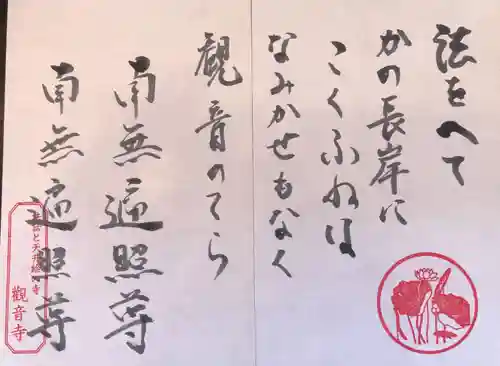 法をへて
かの長岸に
こくふねは
なみかせもなく
観音のてら
南無遍照尊
南無遍照尊
と天井絵の寺
觀音寺